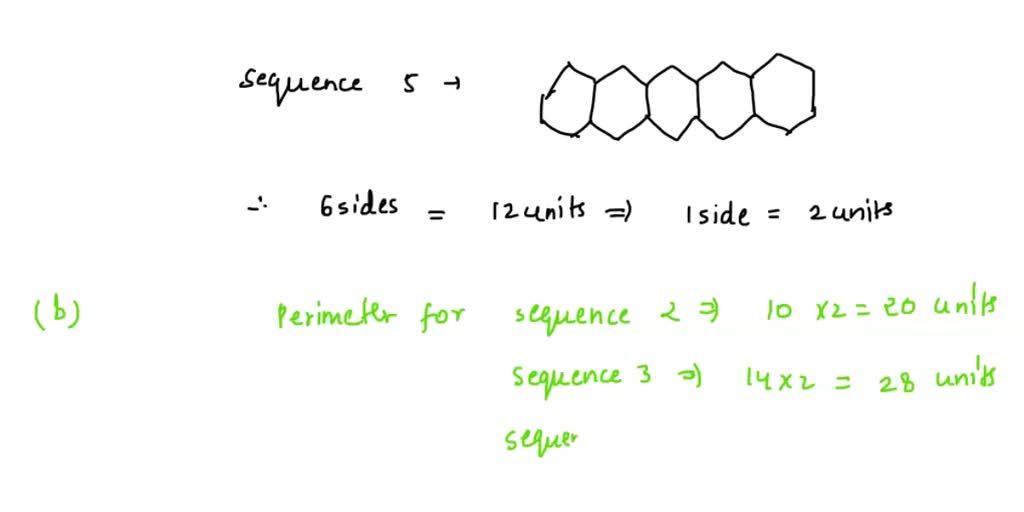 sequence 5 →
∴ 6 sides = 12 units ⇒ 1 side = 2 units
(b) Perimeter for sequence 2 ⇒ 10 x2 = 20 units
sequence 3 ⇒ 14 x 2 = 28 units
sequer